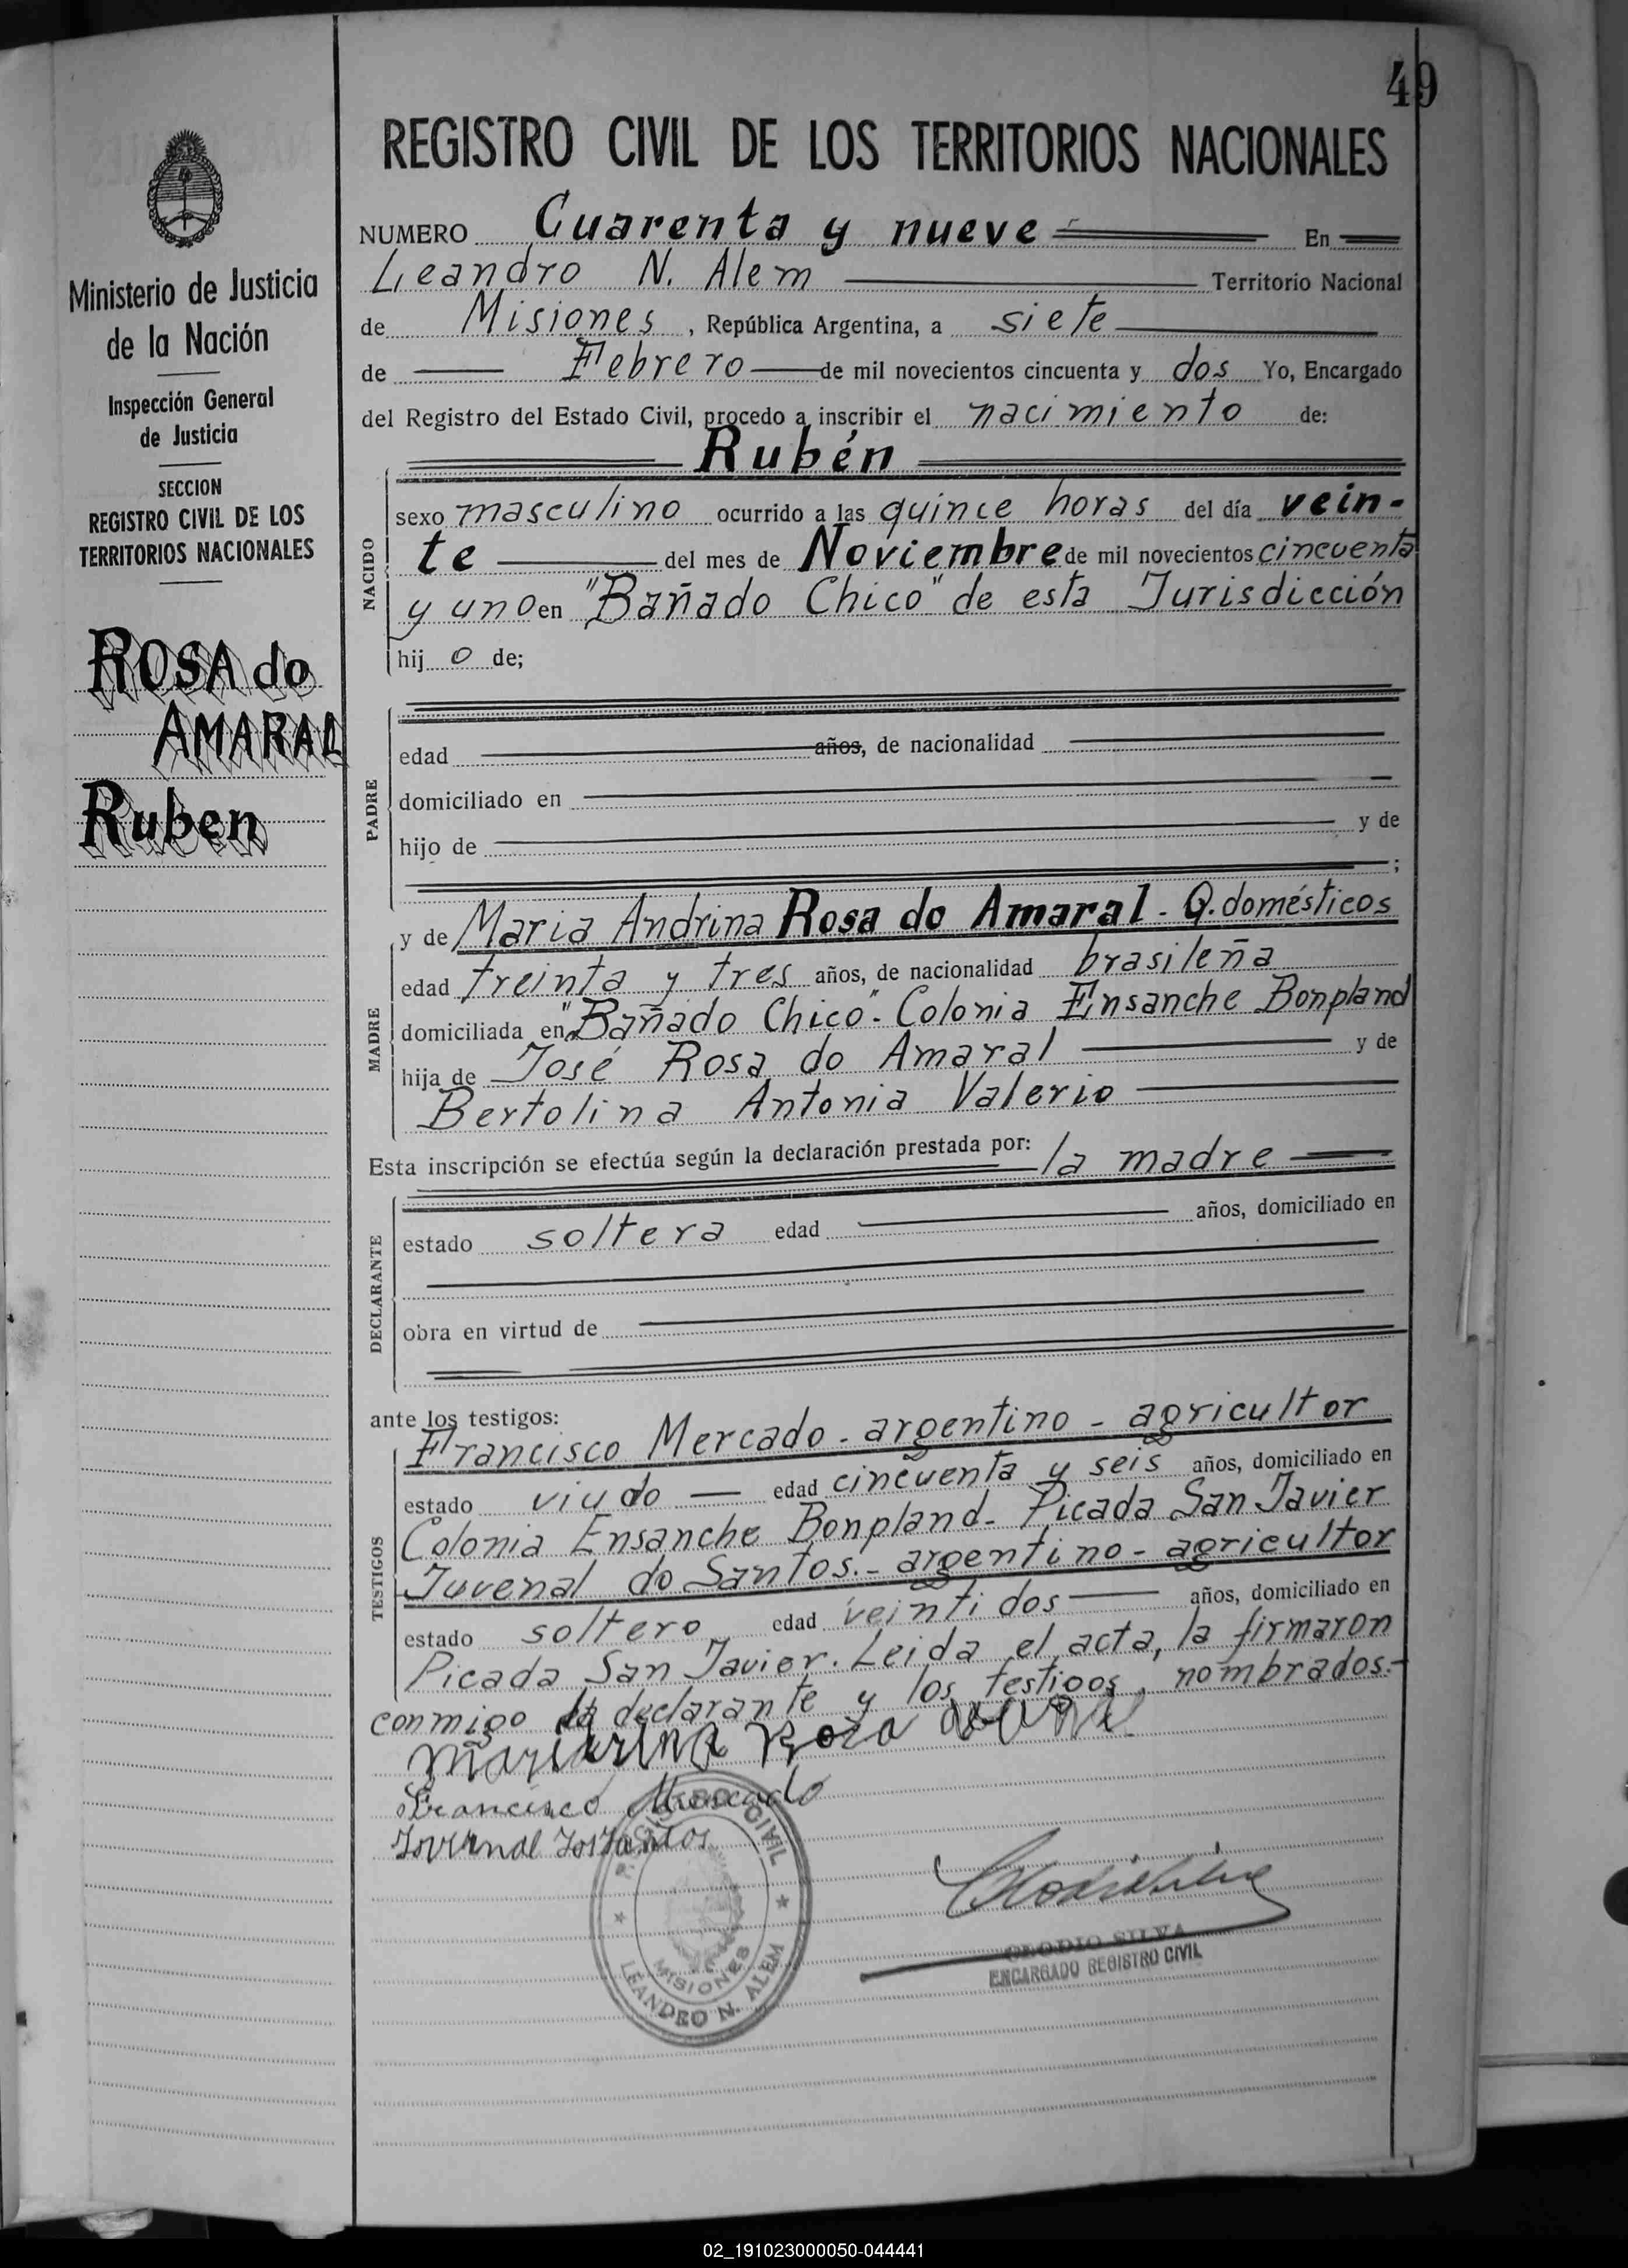 49
REGISTRO CIVIL DE LOS TERRITORIOS NACIONALES
Ministerio de Justicia
de la Nación
Inspección General
de Justicia
SECCION
REGISTRO CIVIL DE LOS
TERRITORIOS NACIONALES
ROSA do
AMARAL
Ruben
NUMERO Cuarenta y nueve En
Leandro N. Alem Territorio Nacional
de Misiones, República Argentina, a siete
de Febrero de mil novecientos cincuenta y dos Yo, Encargado
del Registro del Estado Civil, procedo a inscribir el nacimiento de:
Rubén
NACIDO
sexo masculino ocurrido a las quince horas del día vein-
te del mes de Noviembre de mil novecientos cincuenta
y uno en "Bañado Chico" de esta Jurisdicción
hij o de;
PADRE
edad años, de nacionalidad
domiciliado en
hijo de y de
;
MADRE
y de Maria Andrina Rosa do Amaral - Q. domésticos
edad treinta y tres años, de nacionalidad brasileña
domiciliada en "Bañado Chico". Colonia Ensanche Bonpland
hija de José Rosa do Amaral y de
Bertolina Antonia Valerio
Esta inscripción se efectúa según la declaración prestada por: la madre
DECLARANTE
estado soltera edad años, domiciliado en
obra en virtud de
ante los testigos:
TESTIGOS
Francisco Mercado - argentino - agricultor
estado viudo edad cincuenta y seis años, domiciliado en
Colonia Ensanche Bonpland - Picada San Javier
Juvenal do Santos.- argentino - agricultor
estado soltero edad veinti dos años, domiciliado en
Picada San Javier. Leida el acta, la firmaron
conmigo la declarante y los testigos nombrados.-
Rosa
Francisco Mercado
REGISTRO CIVIL
MISIONES
LEANDRO N. ALEM
CLODIO SILVA
ENCARGADO REGISTRO CIVIL
02_191023000050-044441